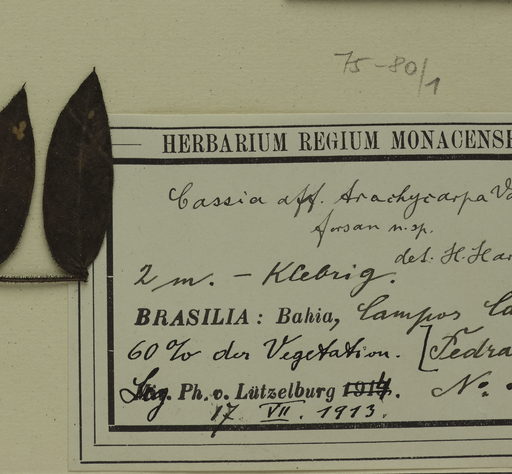 75-80/1
HERBARIUM REGIUM MONACENS
Cassia aff. trachycarpa
forsan n. sp.
det. H. Har
2 m. – Klebrig.
BRASILIA: Bahia, Campos
60% der Vegetation. [Fedra
Leg. Ph. v. Lützelburg 1914. No.
17. VII. 1913.